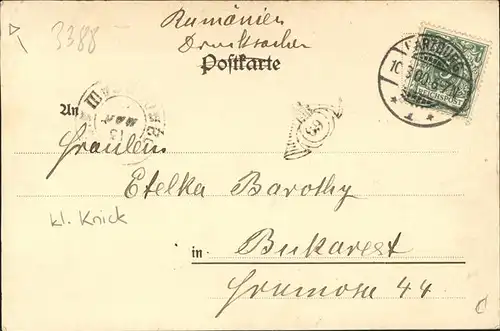 3388 —
Rumänien
Drucksache
Postkarte
10.3.00.6-7N
REICHSPOST
An
Fräulein
Etelka Barothy
kl. Knick
in Bukarest
Frumosa 44